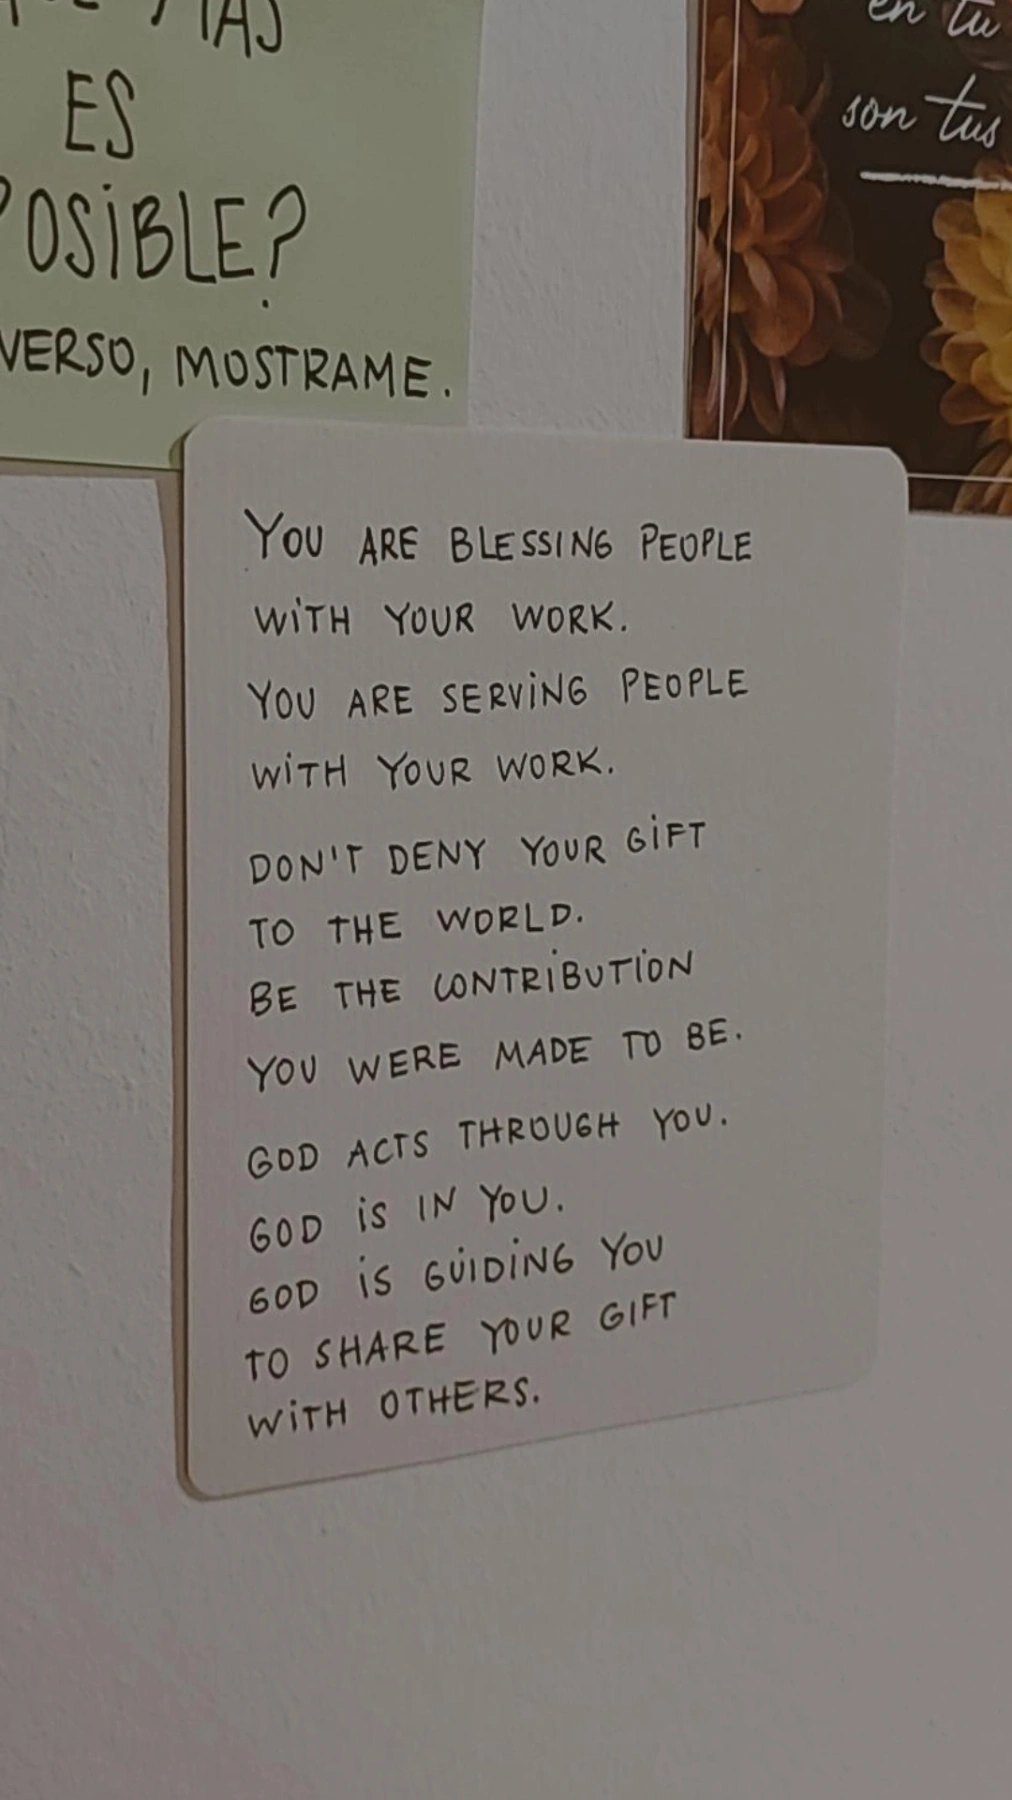 MÁS
ES
POSIBLE?
VERSO, MOSTRAME.
en tu
son tus
YOU ARE BLESSING PEOPLE
WITH YOUR WORK.
YOU ARE SERVING PEOPLE
WITH YOUR WORK.
DON'T DENY YOUR GIFT
TO THE WORLD.
BE THE CONTRIBUTION
YOU WERE MADE TO BE.
GOD ACTS THROUGH YOU.
GOD IS IN YOU.
GOD IS GUIDING YOU
TO SHARE YOUR GIFT
WITH OTHERS.